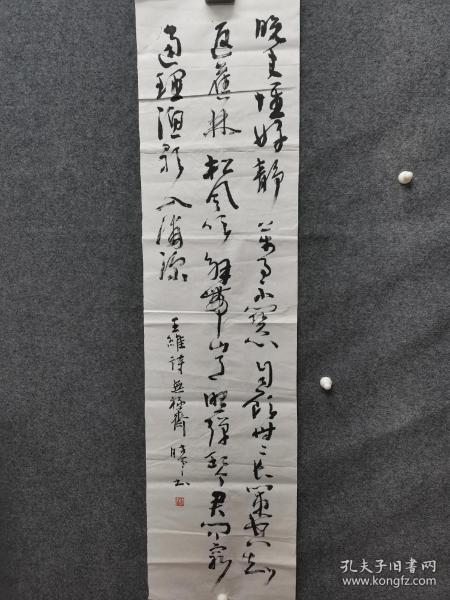 晚年惟好静萬事不關心自顧無長策空知
返舊林松風吹解帶山月照彈琴君問窮
通理漁歌入浦深
王維詩
孔夫子旧书网
www.kongfz.com